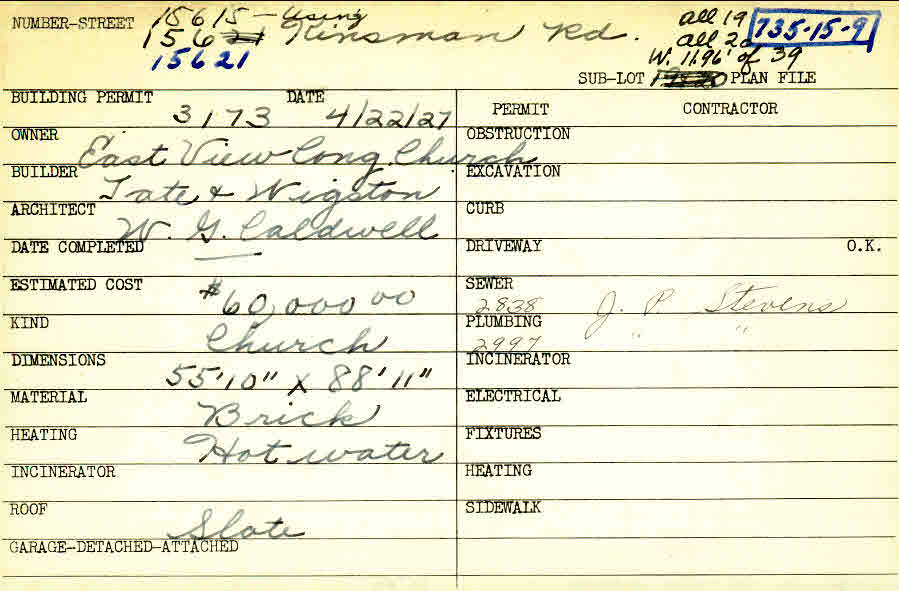 NUMBER-STREET 15615 - Using
156 Kinsman Rd.
15621
all 19
all 20
W. 11.96' of 39
735-15-9
SUB-LOT PLAN FILE
BUILDING PERMIT 3173 DATE 4/22/27
OWNER East View Cong. Church
BUILDER Tate & Wigston
ARCHITECT W. G. Caldwell
DATE COMPLETED —
ESTIMATED COST $60,000 00
KIND Church
DIMENSIONS 55'10" x 88'11"
MATERIAL Brick
HEATING Hot water
INCINERATOR
ROOF Slate
GARAGE-DETACHED-ATTACHED
PERMIT CONTRACTOR
OBSTRUCTION
EXCAVATION
CURB
DRIVEWAY O.K.
SEWER 2838 J. P. Stevens
PLUMBING 2997 " "
INCINERATOR
ELECTRICAL
FIXTURES
HEATING
SIDEWALK